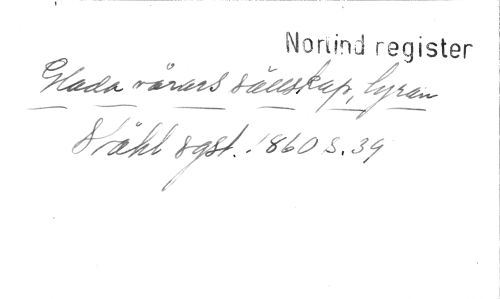 Norlind register
Glada vårars sällskap, lyran
Ståhl sgst. 1860 s. 39